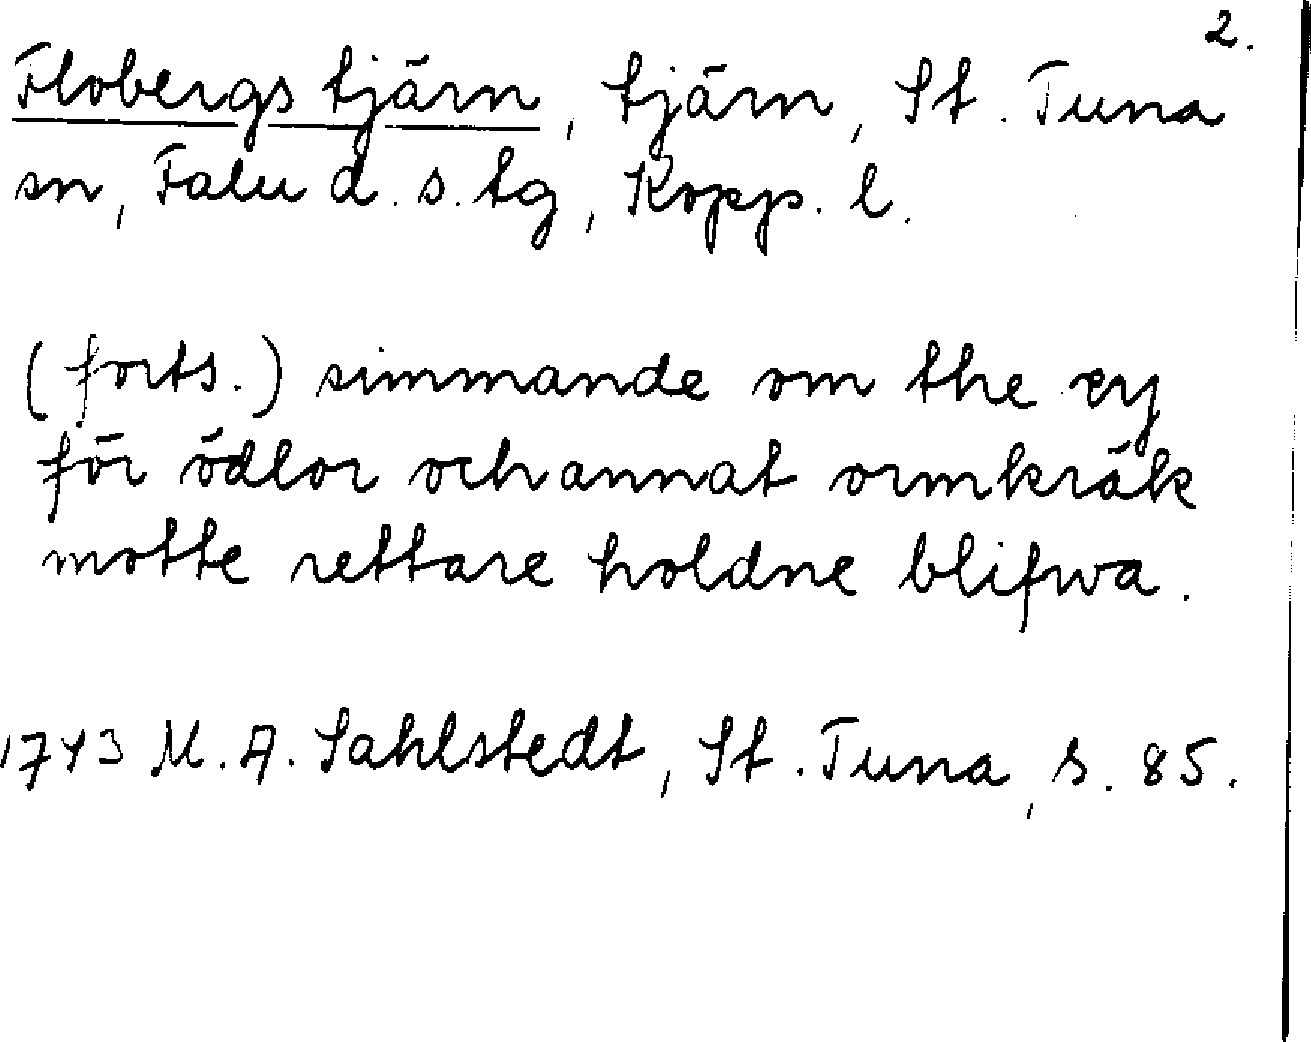 2.
Flobergs tjärn, tjärn, St. Tuna
sn, Falu d. s. tg, Kopp. l.
(forts.) simmande om the ey
för ödlor och annat ormkräk
motte rettare holdne blifwa.
1743 M. A. Sahlstedt, St. Tuna, s. 85.